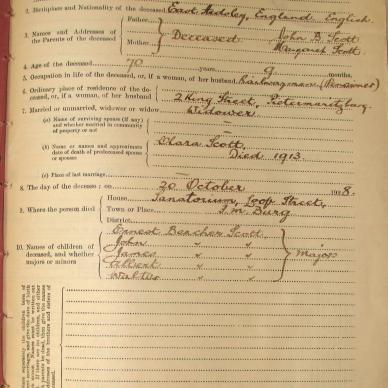 2. Birthplace and Nationality of the deceased East Sedsley, England English.
3. Names and Addresses of the Parents of the deceased
Father... Deceased John B Scott
Mother... Margaret Scott
4. Age of the deceased 70 years 9 months.
5. Occupation in life of the deceased, or, if a woman, of her husband Railwayman (Pensioner)
6. Ordinary place of residence of the deceased, or, if a woman, of her husband
2 King Street, Pietermaritzburg
7. Married or unmarried, widower or widow Widower
(a) Name of surviving spouse (if any) and whether married in community of property or not —
(b) Name or names and approximate date of death of predeceased spouse or spouses
Clara Scott
Died 1913.
(c) Place of last marriage —
8. The day of the decease: on 20 October 1938.
9. Where the person died
House Sanatorium, Loop Street,
Town or Place P.M.Burg
District
10. Names of children of deceased, and whether majors or minors
Ernest Bercher Scott
John " "
James " "
Albert " "
Walter " "
Majors